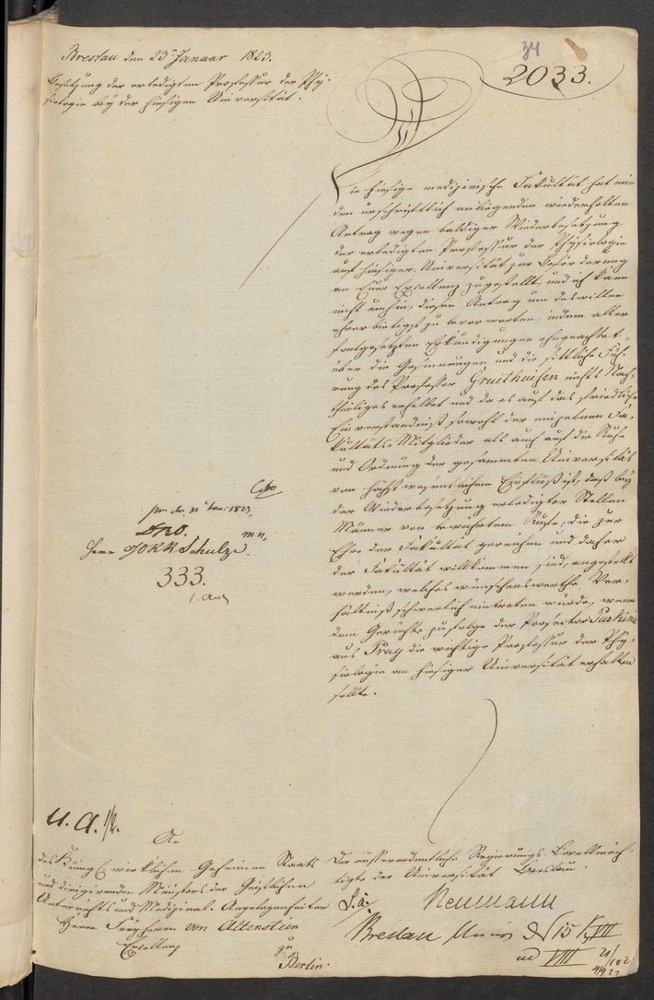 Breslau den 23n Januar 1823.
Besetzung der erledigten Professur der Phy-
siologie bey der hiesigen Universität.
34
2033.
Die hiesige medizinische Fakultät hat mir
den urschriftlich anliegenden wiederholten
Antrag wegen baldiger Wiederbesetzung
der erledigten Professur der Physiologie
auf hiesiger Universität zur Beförderung
an Euer Excellenz zugestellt, und ich kann
nicht umhin, diesen Antrag um deswillen
ehrerbietigst zu bevorworten, indem aller
fortgesetzten Erkundigungen ohngeachtet,
über die Gesinnungen und die sittliche Füh-
rung des Professor Gruithuisen nichts Nach-
theiliges erhellet und da es auf das friedliche
Einverständniß sowohl der einzelnen Fa-
kultäts-Mitglieder als auch auf die Ruhe
und Ordnung der gesammten Universität
von höchst wesentlichem Einfluß ist, daß bey
der Wiederbesetzung erledigter Stellen
Männer von bewährtem Rufe, die zur
Ehre der Fakultät gereichen und daher
der Fakultät willkommen sind, angestellt
werden, welches wünschenswerthe Ver-
hältniß schwerlich eintreten würde, wenn
dem Gerüchte zufolge der Prosector Purkinje
aus Prag die wichtige Professur der Phy-
siologie an hiesiger Universität erhalten
sollte.
Herrn Schulze.
333.
U. A.
An
des Königl. wirklichen Geheimen Staats
und dirigirenden Ministers der Geistlichen
Unterrichts und Medizinal-Angelegenheiten
Herrn Freyherrn von Altenstein
Excellenz
zu
Berlin.
Der außerordentliche Regierungs-Bevollmäch-
tigte der Universität Breslau.
Neumann
Breslau
VIII